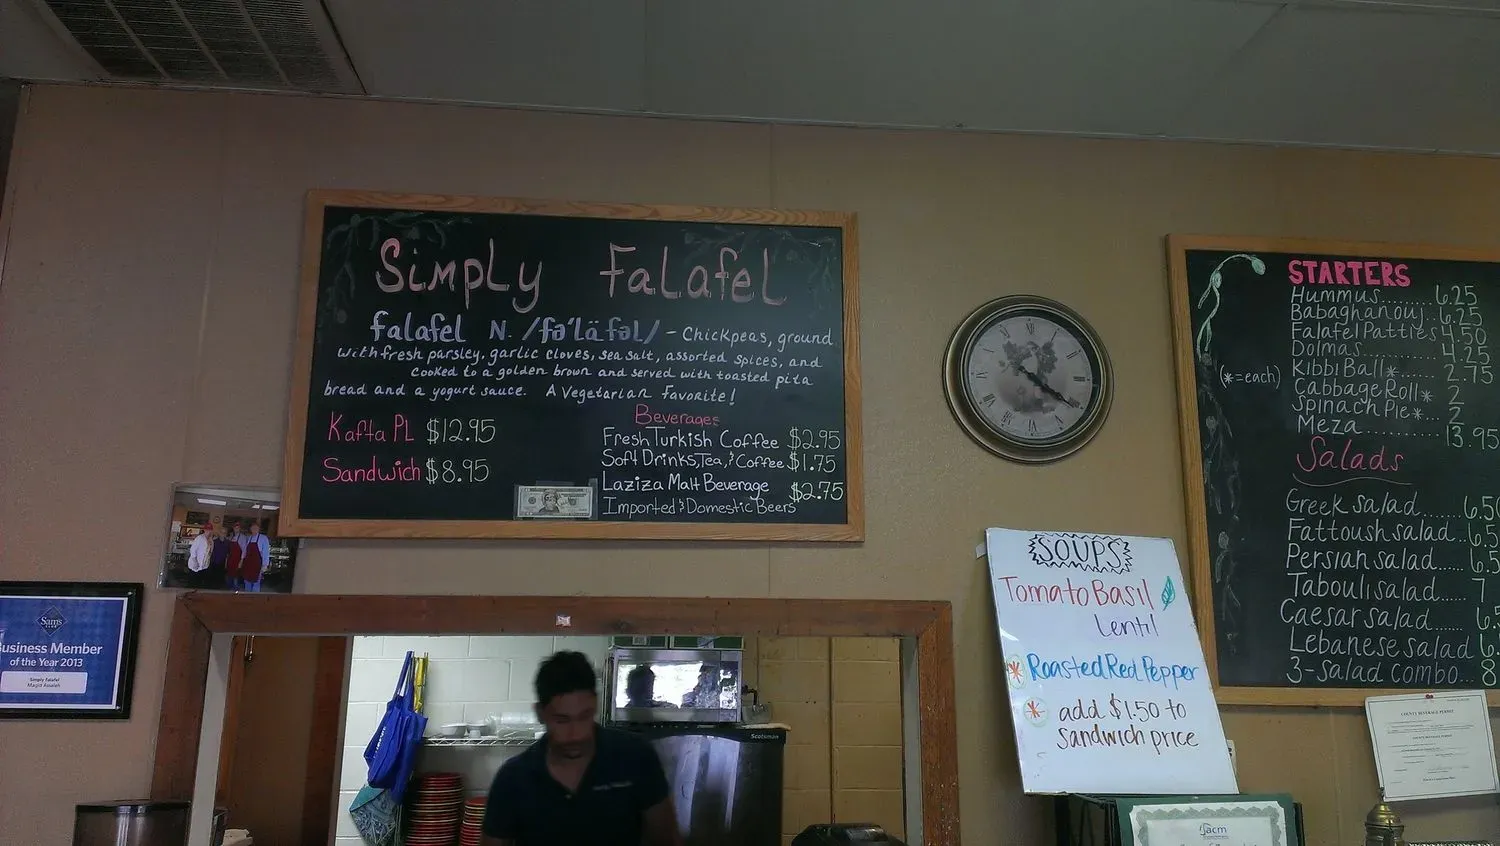 Simply Falafel
falafel N. /fə'läfəl/ - Chickpeas, ground
with fresh parsley, garlic cloves, sea salt, assorted spices, and
cooked to a golden brown and served with toasted pita
bread and a yogurt sauce. A Vegetarian Favorite!
Kafta PL $12.95
Sandwich $8.95
Beverages
Fresh Turkish Coffee $2.95
Soft Drinks, Tea, & Coffee $1.75
Laziza Malt Beverage $2.75
Imported & Domestic Beers
STARTERS
Hummus........ 6.25
Babaghanouj.. 6.25
Falafel Patties 4.50
Dolmas.......... 4.25
(*=each)
Kibbi Ball*...... 2.75
Cabbage Roll* 2
Spinach Pie*... 2
Meza........... 13.95
Salads
Greek salad....... 6.50
Fattoush salad..6.5
Persian salad...... 6.5
Tabouli salad...... 7
Caesar salad...... 6.5
Lebanese salad 6.
3-Salad combo... 8
SOUPS
Tomato Basil
Lentil
* Roasted Red Pepper
* add $1.50 to
sandwich price
Sam's
Business Member
of the Year 2013
Simply Falafel
Scotsman
COUNTY BEVERAGE PERMIT
jacm